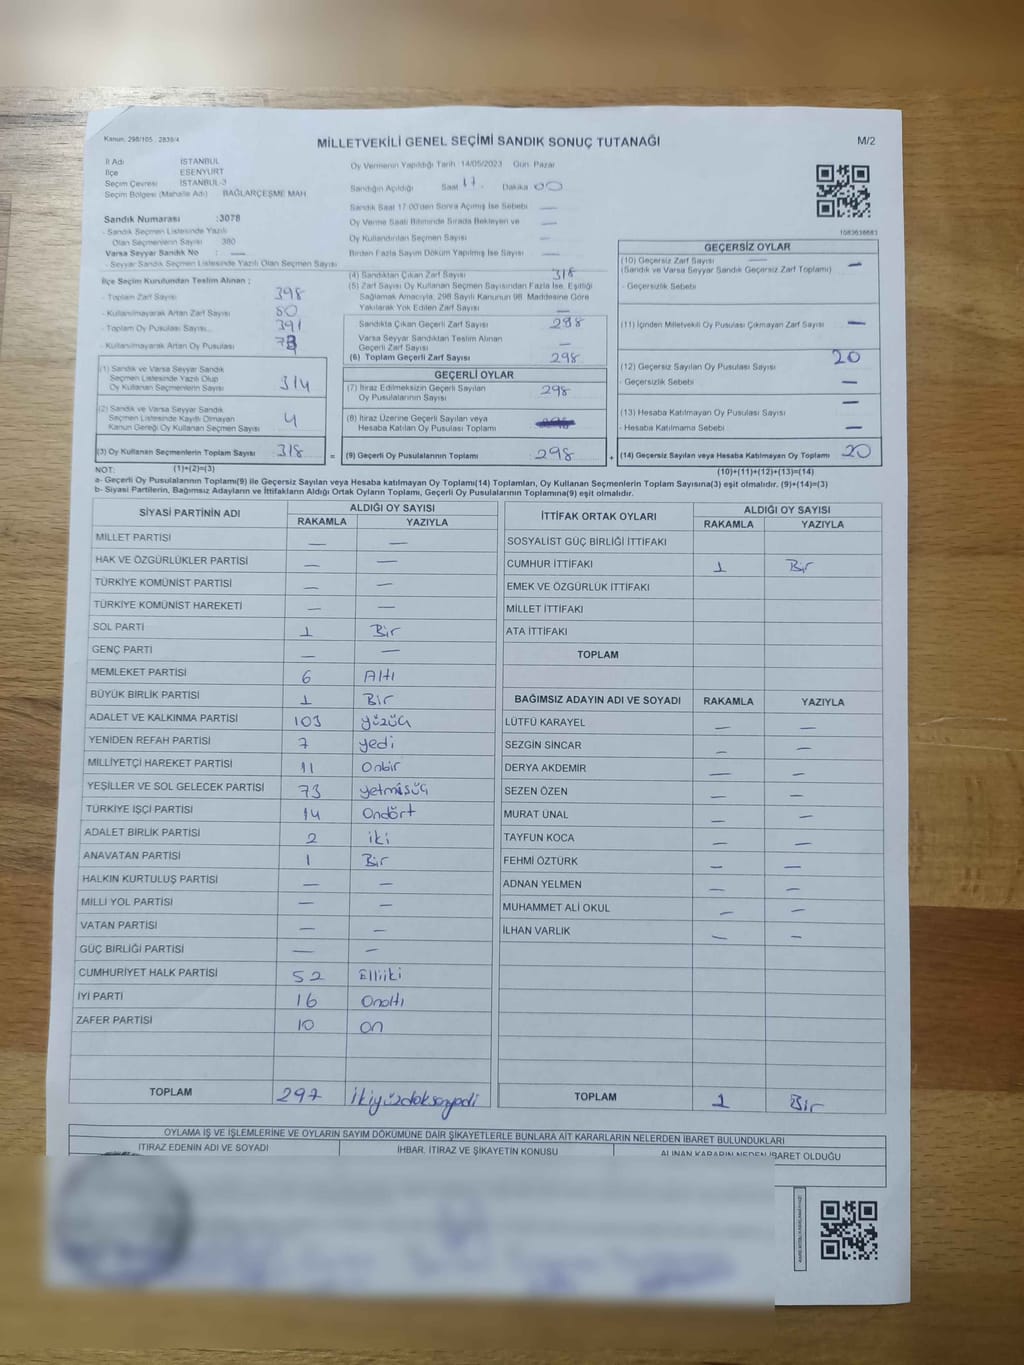 Kanun: 298/105 , 2839/4
MİLLETVEKİLİ GENEL SEÇİMİ SANDIK SONUÇ TUTANAĞI
M/2
İl Adı İSTANBUL
İlçe ESENYURT
Seçim Çevresi İSTANBUL-3
Seçim Bölgesi (Mahalle Adı) BAĞLARÇEŞME MAH.
Sandık Numarası :3078
- Sandık Seçmen Listesinde Yazılı
Olan Seçmenlerin Sayısı 380
Varsa Seyyar Sandık No : —
- Seyyar Sandık Seçmen Listesinde Yazılı Olan Seçmen Sayısı
İlçe Seçim Kurulundan Teslim Alınan ;
- Toplam Zarf Sayısı 398
- Kullanılmayarak Artan Zarf Sayısı 80
- Toplam Oy Pusulası Sayısı.. 391
- Kullanılmayarak Artan Oy Pusulası 73
(1) Sandık ve Varsa Seyyar Sandık
Seçmen Listesinde Yazılı Olup
Oy Kullanan Seçmenlerin Sayısı 314
(2) Sandık ve Varsa Seyyar Sandık
Seçmen Listesinde Kayıtlı Olmayan
Kanun Gereği Oy Kullanan Seçmen Sayısı 4
(3) Oy Kullanan Seçmenlerin Toplam Sayısı 318 =
Oy Vermenin Yapıldığı Tarih :14/05/2023 Gün: Pazar
Sandığın Açıldığı Saat 17. Dakika 00
Sandık Saat 17:00'den Sonra Açılmış İse Sebebi —
Oy Verme Saati Bitiminde Sırada Bekleyen ve —
Oy Kullandırılan Seçmen Sayısı —
Birden Fazla Sayım Döküm Yapılmış İse Sayısı —
(4) Sandıktan Çıkan Zarf Sayısı 318
(5) Zarf Sayısı Oy Kullanan Seçmen Sayısından Fazla İse, Eşitliği
Sağlamak Amacıyla, 298 Sayılı Kanunun 98. Maddesine Göre
Yakılarak Yok Edilen Zarf Sayısı —
Sandıkta Çıkan Geçerli Zarf Sayısı 298
Varsa Seyyar Sandıktan Teslim Alınan
Geçerli Zarf Sayısı —
(6) Toplam Geçerli Zarf Sayısı 298
GEÇERLİ OYLAR
(7) İtiraz Edilmeksizin Geçerli Sayılan
Oy Pusulalarının Sayısı 298
(8) İtiraz Üzerine Geçerli Sayılan veya
Hesaba Katılan Oy Pusulası Toplamı
(9) Geçerli Oy Pusulalarının Toplamı 298 +
1083638683
GEÇERSİZ OYLAR
(10) Geçersiz Zarf Sayısı — —
(Sandık ve Varsa Seyyar Sandık Geçersiz Zarf Toplamı)
- Geçersizlik Sebebi
(11) İçinden Milletvekili Oy Pusulası Çıkmayan Zarf Sayısı —
(12) Geçersiz Sayılan Oy Pusulası Sayısı 20
- Geçersizlik Sebebi —
(13) Hesaba Katılmayan Oy Pusulası Sayısı —
- Hesaba Katılmama Sebebi —
(14) Geçersiz Sayılan veya Hesaba Katılmayan Oy Toplamı 20
NOT: (1)+(2)=(3) (10)+(11)+(12)+(13)=(14)
a- Geçerli Oy Pusulalarının Toplamı(9) ile Geçersiz Sayılan veya Hesaba Katılmayan Oy Toplamı(14) Toplamları, Oy Kullanan Seçmenlerin Toplam Sayısına(3) eşit olmalıdır. (9)+(14)=(3)
b- Siyasi Partilerin, Bağımsız Adayların ve İttifakların Aldığı Ortak Oyların Toplamı, Geçerli Oy Pusulalarının Toplamına(9) eşit olmalıdır.
SİYASİ PARTİNİN ADI ALDIĞI OY SAYISI
RAKAMLA YAZIYLA
MİLLET PARTİSİ — —
HAK VE ÖZGÜRLÜKLER PARTİSİ — —
TÜRKİYE KOMÜNİST PARTİSİ — —
TÜRKİYE KOMÜNİST HAREKETİ — —
SOL PARTİ 1 Bir
GENÇ PARTİ — —
MEMLEKET PARTİSİ 6 Altı
BÜYÜK BİRLİK PARTİSİ 1 Bir
ADALET VE KALKINMA PARTİSİ 103 yüzüç
YENİDEN REFAH PARTİSİ 7 yedi
MİLLİYETÇİ HAREKET PARTİSİ 11 Onbir
YEŞİLLER VE SOL GELECEK PARTİSİ 73 yetmişüç
TÜRKİYE İŞÇİ PARTİSİ 14 Ondört
ADALET BİRLİK PARTİSİ 2 iki
ANAVATAN PARTİSİ 1 Bir
HALKIN KURTULUŞ PARTİSİ — —
MİLLİ YOL PARTİSİ — —
VATAN PARTİSİ — —
GÜÇ BİRLİĞİ PARTİSİ — —
CUMHURİYET HALK PARTİSİ 52 Elliiki
İYİ PARTİ 16 Onaltı
ZAFER PARTİSİ 10 on
TOPLAM 297 ikiyüzdoksanyedi
İTTİFAK ORTAK OYLARI ALDIĞI OY SAYISI
RAKAMLA YAZIYLA
SOSYALİST GÜÇ BİRLİĞİ İTTİFAKI
CUMHUR İTTİFAKI 1 Bir
EMEK VE ÖZGÜRLÜK İTTİFAKI
MİLLET İTTİFAKI
ATA İTTİFAKI
TOPLAM
BAĞIMSIZ ADAYIN ADI VE SOYADI RAKAMLA YAZIYLA
LÜTFÜ KARAYEL — —
SEZGİN SİNCAR — —
DERYA AKDEMİR — —
SEZEN ÖZEN — —
MURAT ÜNAL — —
TAYFUN KOCA — —
FEHMİ ÖZTÜRK — —
ADNAN YELMEN — —
MUHAMMET ALİ OKUL — —
İLHAN VARLIK — —
TOPLAM 1 Bir
OYLAMA İŞ VE İŞLEMLERİNE VE OYLARIN SAYIM DÖKÜMÜNE DAİR ŞİKAYETLERLE BUNLARA AİT KARARLARIN NELERDEN İBARET BULUNDUKLARI
İTİRAZ EDENİN ADI VE SOYADI İHBAR, İTİRAZ VE ŞİKAYETİN KONUSU ALINAN KARARIN NEDEN İBARET OLDUĞU